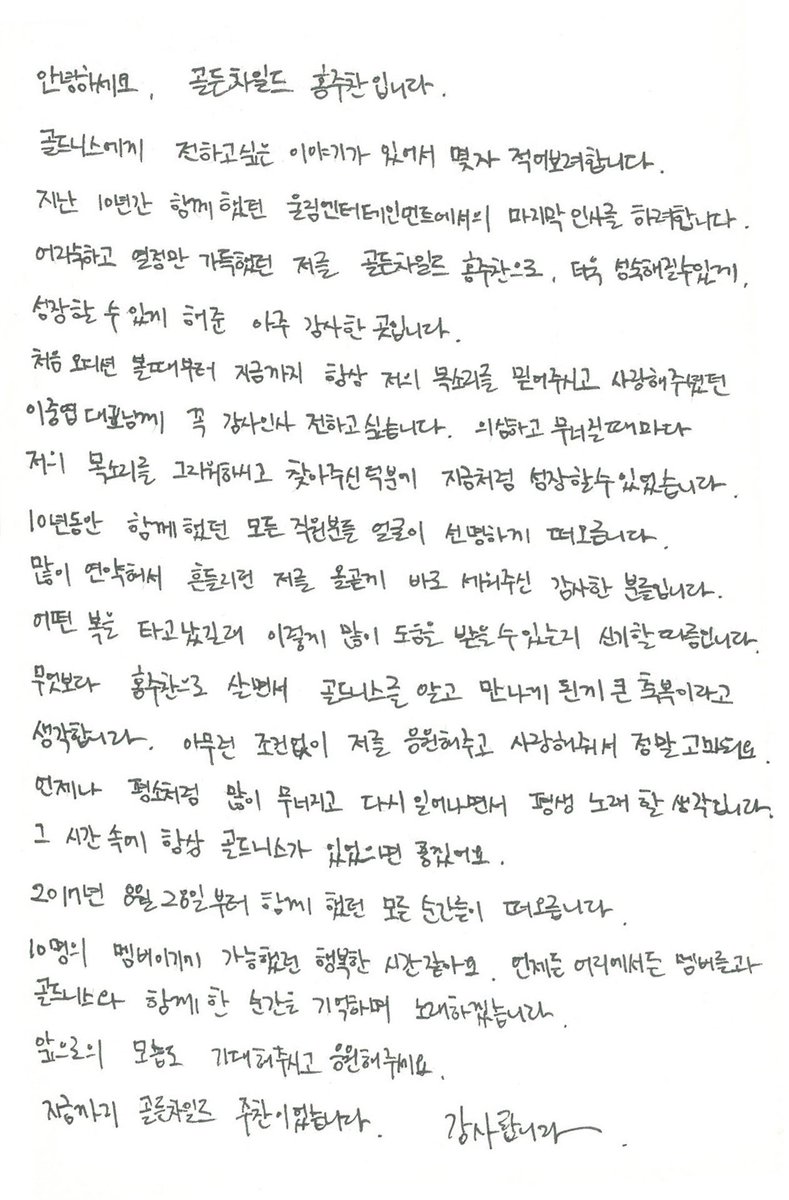 안녕하세요, 골든차일드 홍주찬입니다.
골드니스에게 전하고싶은 이야기가 있어서 몇자 적어보려합니다.
지난 10년간 함께 했던 울림엔터테인먼트에서의 마지막 인사를 하려합니다.
어리숙하고 열정만 가득했던 저를 골든차일드 홍주찬으로, 더욱 성숙해질수있게,
성장할 수 있게 해준 아주 감사한 곳입니다.
처음 오디션 볼때부터 지금까지 항상 저의 목소리를 믿어주시고 사랑해주셨던
이중엽 대표님께 꼭 감사인사 전하고싶습니다. 의심하고 무너질때마다
저의 목소리를 그리워하시고 찾아주신덕분에 지금처럼 성장할수있었습니다.
10년동안 함께 했던 모든 직원분들 얼굴이 선명하게 떠오릅니다.
많이 연약해서 흔들리던 저를 올곧게 바로 세워주신 감사한 분들입니다.
어떤 복을 타고났길래 이렇게 많이 도움을 받을수있는지 신기할따름입니다.
무엇보다 홍주찬으로 살면서 골드니스를 알고 만나게 된게 큰 축복이라고
생각합니다. 아무런 조건없이 저를 응원해주고 사랑해줘서 정말 고마워요.
언제나 평소처럼 많이 무너지고 다시 일어나면서 평생 노래 할 생각입니다.
그 시간 속에 항상 골드니스가 있었으면 좋겠어요.
2017년 8월 28일부터 함께 했던 모든 순간들이 떠오릅니다.
10명의 멤버이기에 가능했던 행복한 시간같아요. 언제든 어디에서든 멤버들과
골드니스와 함께 한 순간을 기억하며 노래하겠습니다.
앞으로의 모습도 기대해주시고 응원해주세요.
지금까지 골든차일드 주찬이었습니다. 감사합니다.